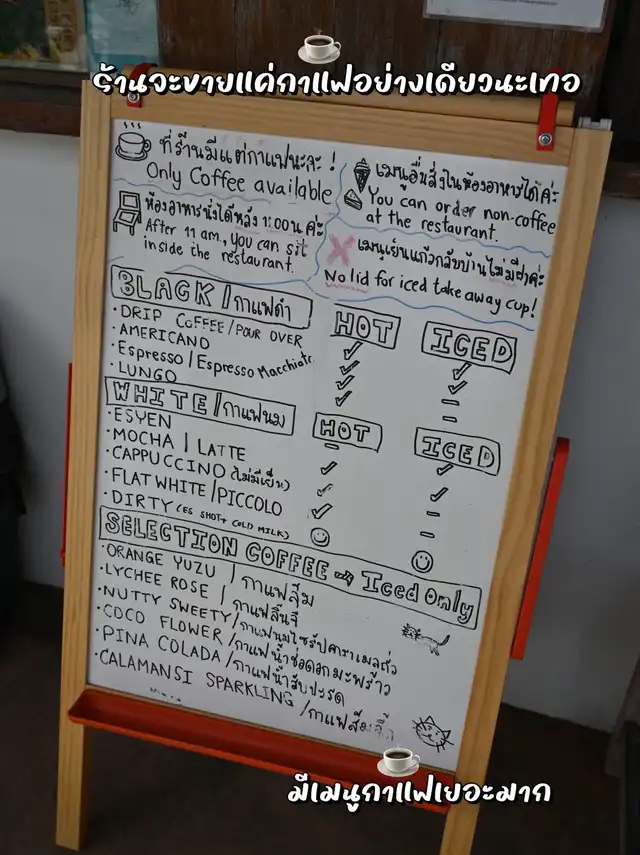 ร้านจะขายแค่กาแฟอย่างเดียวนะเทอ
ที่ร้านมีแต่กาแฟนะจะ!
Only Coffee available
ห้องอาหารนั่งได้หลัง 11:00 น. ค่ะ
After 11 am, you can sit
inside the restaurant.
เมนูอื่นสั่งในห้องอาหารได้ค่ะ
You can order non-coffee
at the restaurant.
เมนูเย็นแก้วกลับบ้านไม่มีฝาค่ะ
No lid for iced take away cup!
BLACK/กาแฟดำ HOT ICED
• DRIP COFFEE/POUR OVER
• AMERICANO
• Espresso | Espresso Macchiato
• LUNGO
WHITE/กาแฟนม HOT ICED
• ESYEN
• MOCHA | LATTE
• CAPPUCCINO (ไม่มีเย็น)
• FLAT WHITE/PICCOLO
• DIRTY (ES SHOT+ COLD MILK)
SELECTION COFFEE → Iced Only
• ORANGE YUZU | กาแฟส้ม
• LYCHEE ROSE | กาแฟลิ้นจี่
• NUTTY SWEETY/กาแฟนมไซรัปคาราเมลถั่ว
• COCO FLOWER/กาแฟน้ำช่อดอกมะพร้าว
• PINA COLADA/กาแฟน้ำสับปะรด
• CALAMANSI SPARKLING/กาแฟส้มจี๊ด
มีเมนูกาแฟเยอะมาก